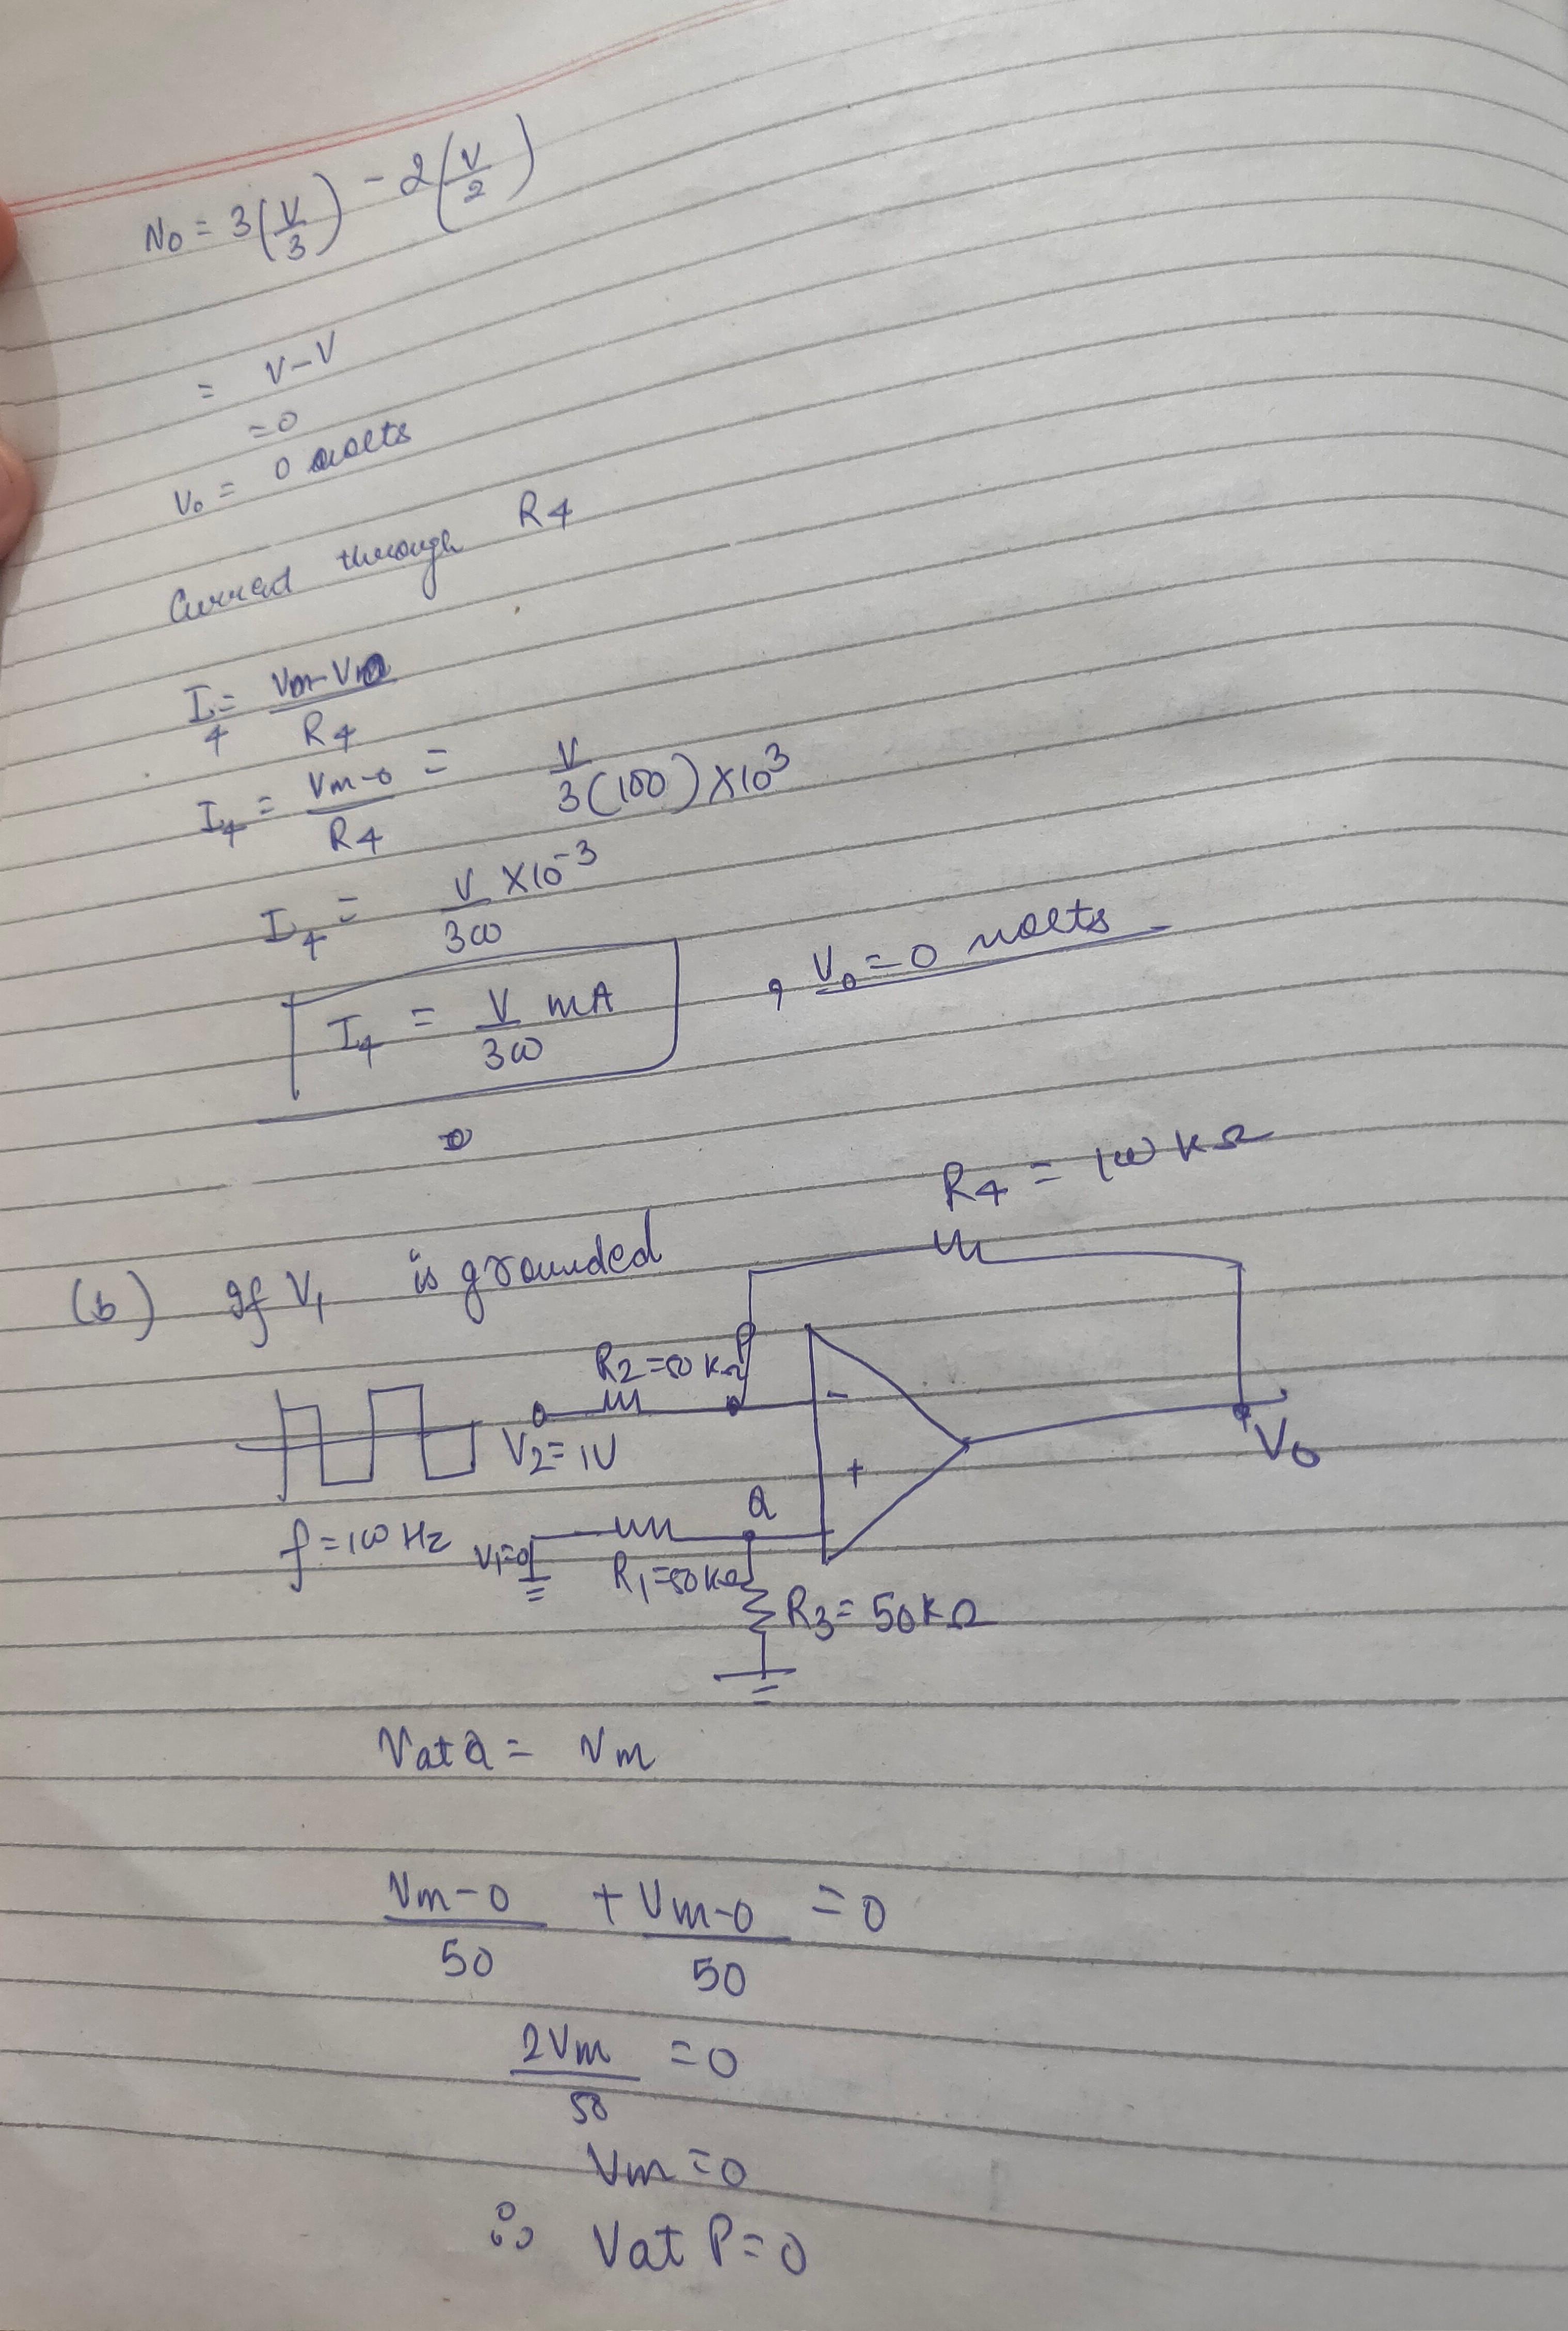 No = 3(V/3) - 2(V/2)
= V-V
=0
Vo = 0 volts
Current through R4
I4 = Vm-Vo/R4
I4 = Vm-0/R4 = V/3(100)×10³
I4 = V/300 ×10-3
I4 = V/300 mA , Vo=0 volts
R4 = 100 KΩ
(b) If V1 is grounded
R2=50 KΩ P
V2=1V
-
+
Vo
f=100 Hz
V1=0
Q
R1=50KΩ
R3=50KΩ
V at Q = Vm
Vm-0/50 + Vm-0/50 =0
2Vm/50 =0
Vm=0
∴ V at P=0